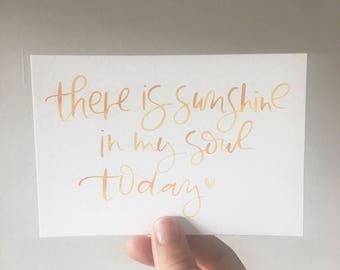 there is sunshine
in my soul
today